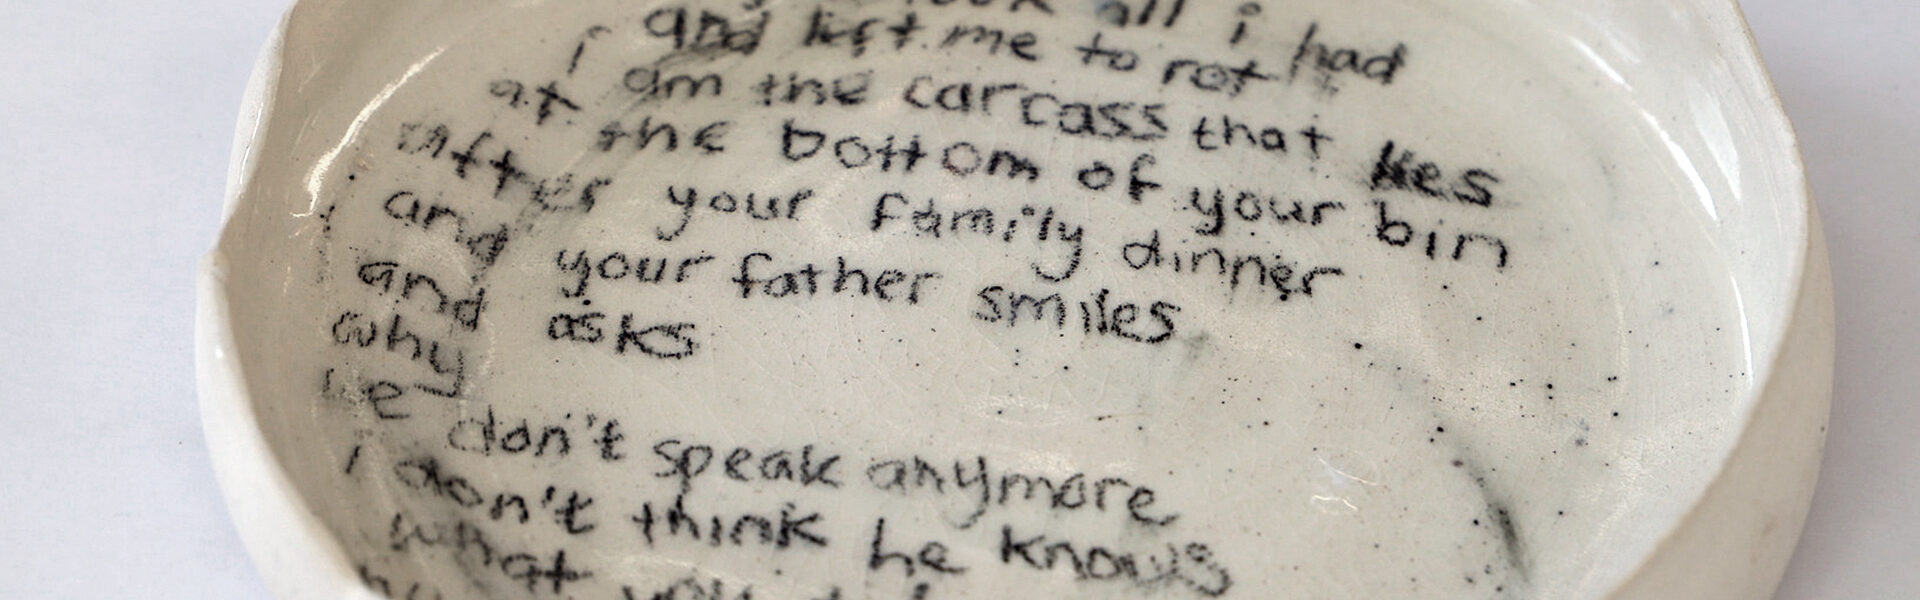 all i had
and left me to rot
i am the carcass that lies
at the bottom of your bin
after your family dinner
and your father smiles
and asks
why
we don't speak anymore
i don't think he knows
what you